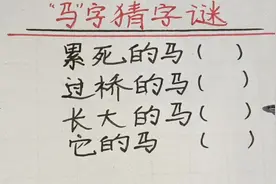 "马"字猜字谜
累死的马（ ）
过桥的马（ ）
长大的马（ ）
它的马（ ）